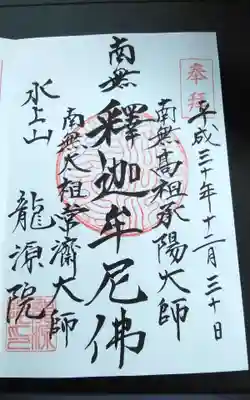 奉拝
平成三十年十二月三十日
南無高祖承陽大師
南無
釋迦牟尼佛
南無太祖常濟大師
水上山
龍源院